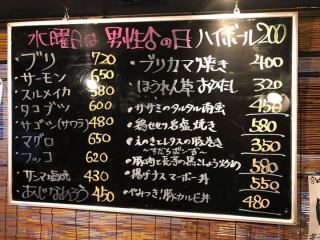 水曜日は 男性♂の日 ハイボール200
・ブリ 720
・サーモン 650
・スルメイカ 380
・タコブツ 600
・サゴシ(サワラ) 480
・マグロ 650
・フッコ 620
・サンマ塩焼 430
・あじなめろう 450
・ブリカマ焼き 400
・ほうれん草おひたし 320
・ササミのタルタル南蛮 450
・鶏セセリ岩塩焼き 580
・えのきとレタスの豚巻き 350
〜すだちポン酢〜
・豚肉と長芋の黒こしょう炒め 580
・揚げナスマーボー丼 550
・やみつき!豚カルビ丼 480